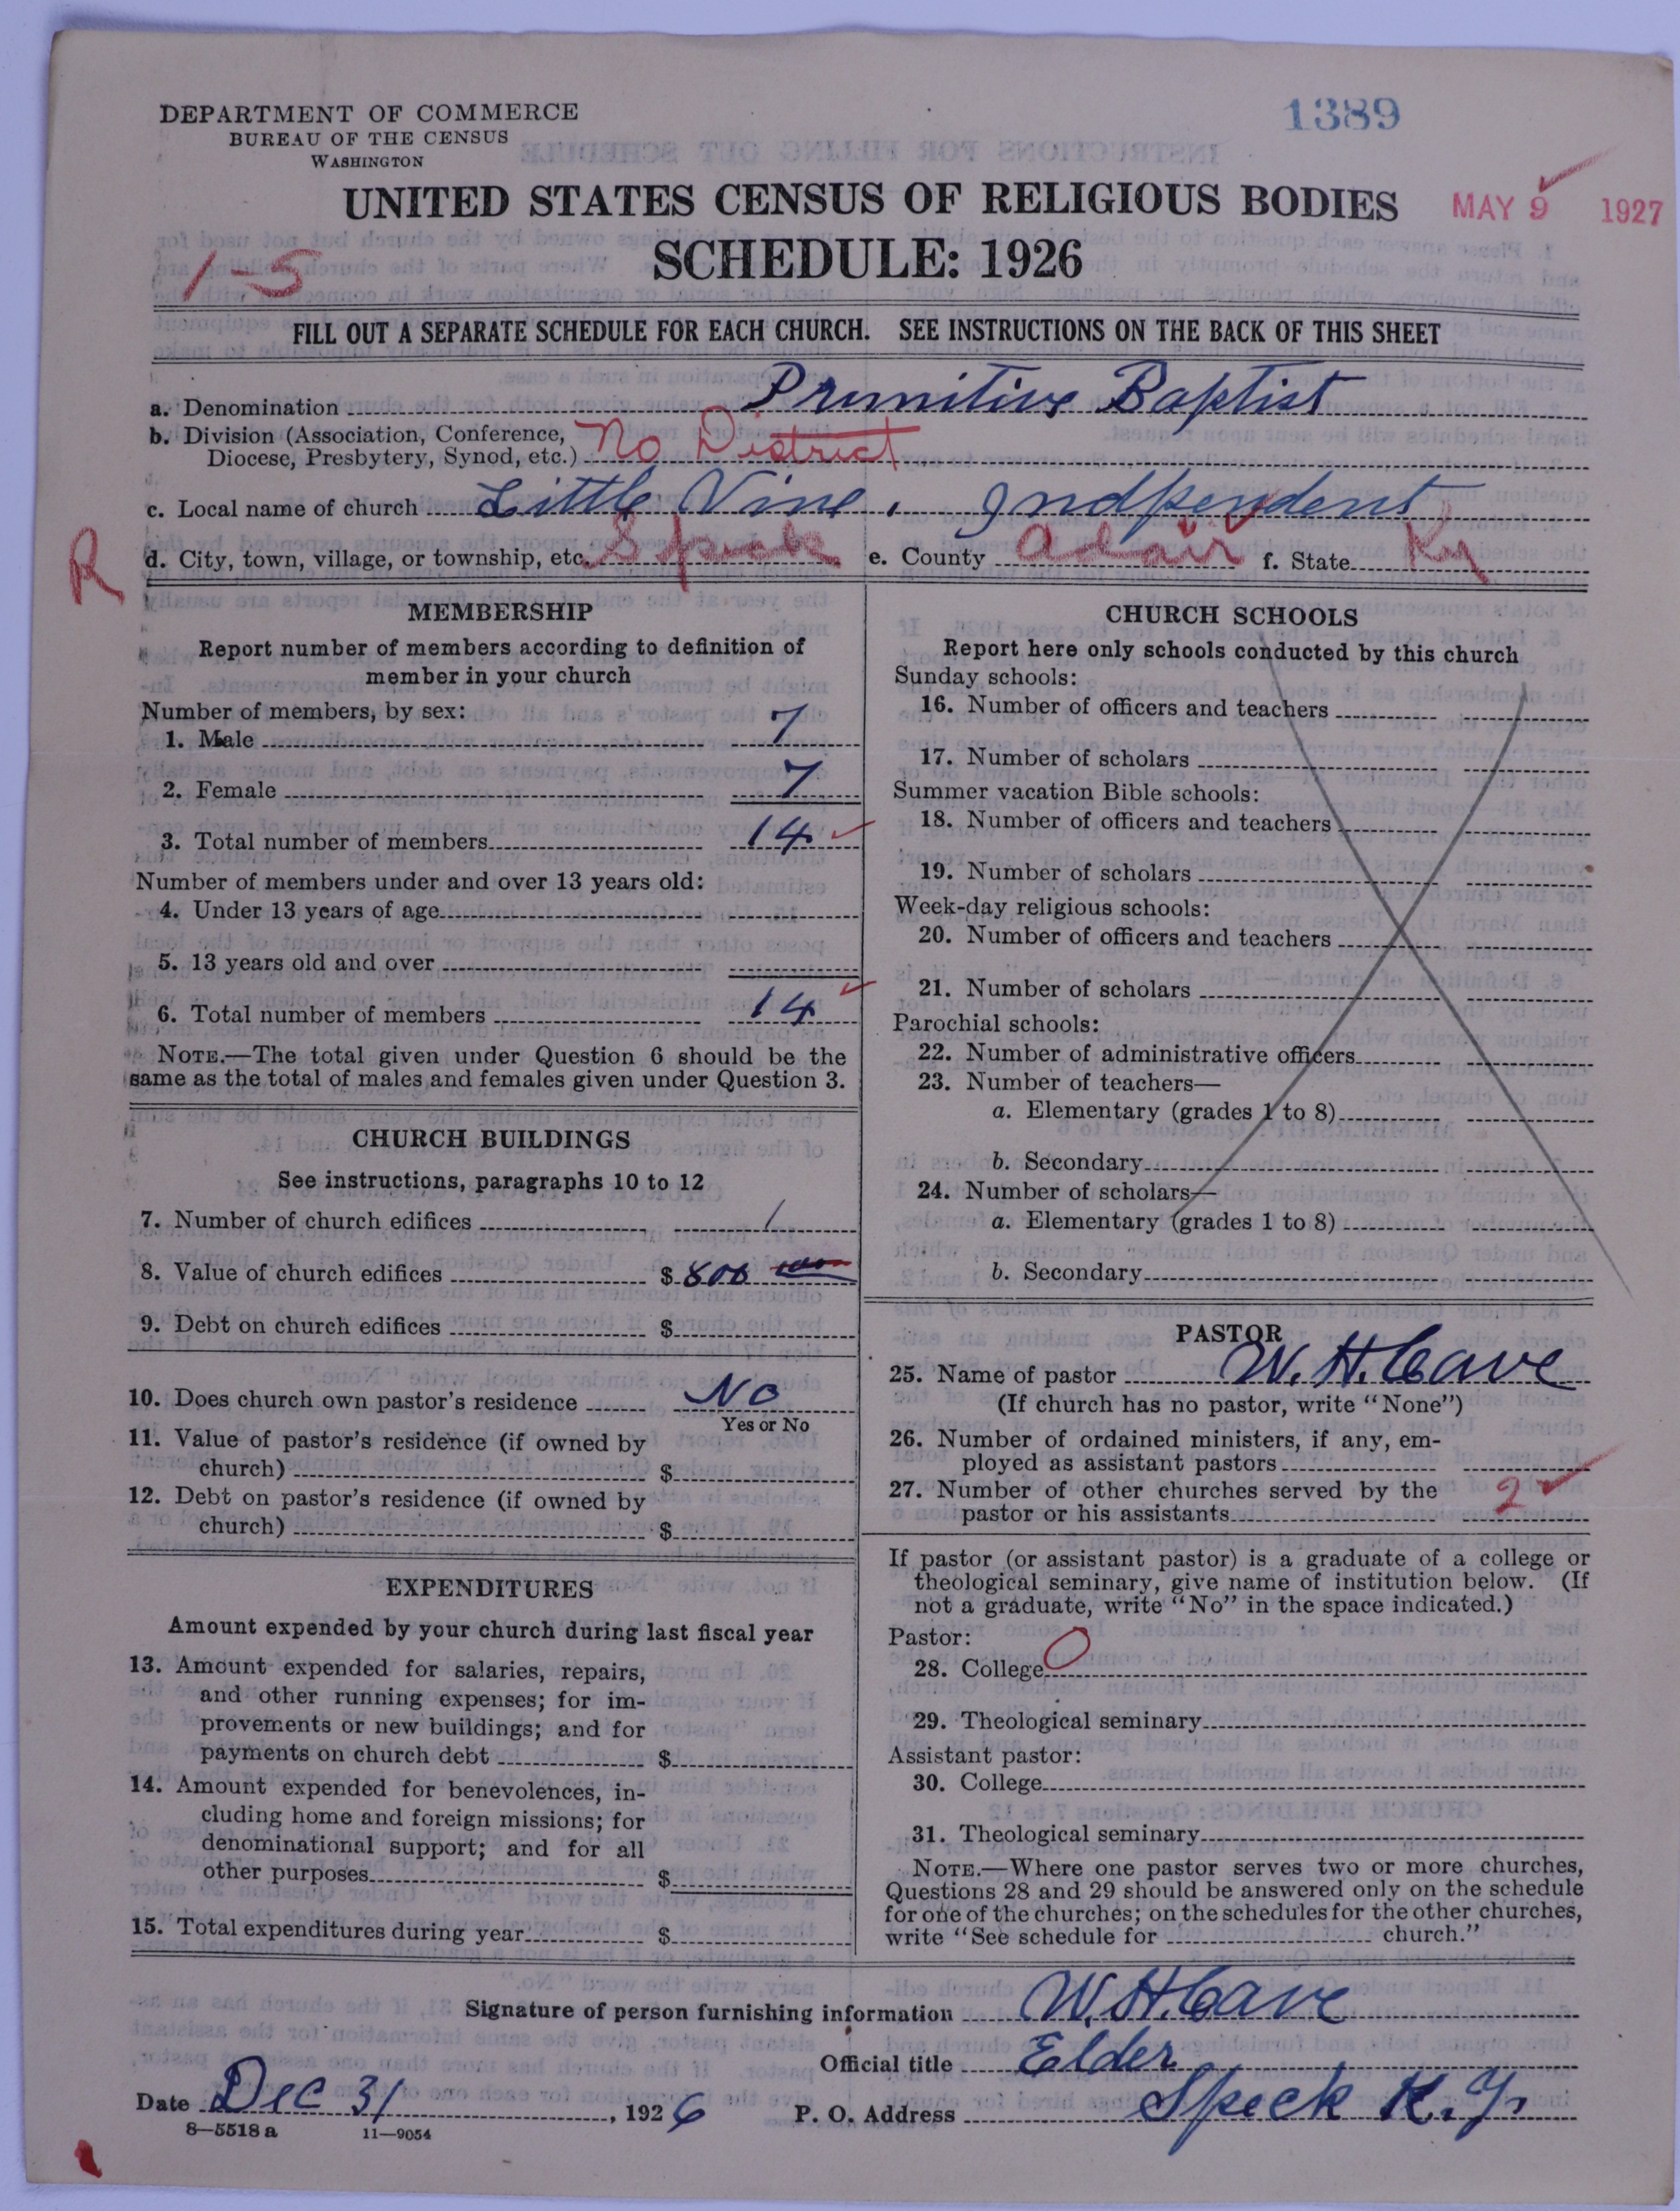 DEPARTMENT OF COMMERCE
BUREAU OF THE CENSUS
WASHINGTON
1389
UNITED STATES CENSUS OF RELIGIOUS BODIES
MAY 9 1927
SCHEDULE: 1926
1-5
FILL OUT A SEPARATE SCHEDULE FOR EACH CHURCH. SEE INSTRUCTIONS ON THE BACK OF THIS SHEET
a. Denomination Primitive Baptist
b. Division (Association, Conference,
Diocese, Presbytery, Synod, etc.) No District
c. Local name of church Little Vine, Indpendent
R
d. City, town, village, or township, etc. Speck e. County Adair f. State Ky
MEMBERSHIP
Report number of members according to definition of
member in your church
Number of members, by sex:
1. Male 7
2. Female 7
3. Total number of members 14
Number of members under and over 13 years old:
4. Under 13 years of age
5. 13 years old and over
6. Total number of members 14
NOTE.—The total given under Question 6 should be the
same as the total of males and females given under Question 3.
CHURCH BUILDINGS
See instructions, paragraphs 10 to 12
7. Number of church edifices 1
8. Value of church edifices $ 800
9. Debt on church edifices $
10. Does church own pastor's residence No
Yes or No
11. Value of pastor's residence (if owned by
church) $
12. Debt on pastor's residence (if owned by
church) $
EXPENDITURES
Amount expended by your church during last fiscal year
13. Amount expended for salaries, repairs,
and other running expenses; for im-
provements or new buildings; and for
payments on church debt $
14. Amount expended for benevolences, in-
cluding home and foreign missions; for
denominational support; and for all
other purposes $
15. Total expenditures during year $
CHURCH SCHOOLS
Report here only schools conducted by this church
Sunday schools:
16. Number of officers and teachers
17. Number of scholars
Summer vacation Bible schools:
18. Number of officers and teachers
19. Number of scholars
Week-day religious schools:
20. Number of officers and teachers
21. Number of scholars
Parochial schools:
22. Number of administrative officers
23. Number of teachers—
a. Elementary (grades 1 to 8)
b. Secondary
24. Number of scholars—
a. Elementary (grades 1 to 8)
b. Secondary
PASTOR
25. Name of pastor W. H. Cave
(If church has no pastor, write "None")
26. Number of ordained ministers, if any, em-
ployed as assistant pastors
27. Number of other churches served by the
pastor or his assistants 2
If pastor (or assistant pastor) is a graduate of a college or
theological seminary, give name of institution below. (If
not a graduate, write "No" in the space indicated.)
Pastor:
28. College O
29. Theological seminary
Assistant pastor:
30. College
31. Theological seminary
NOTE.—Where one pastor serves two or more churches,
Questions 28 and 29 should be answered only on the schedule
for one of the churches; on the schedules for the other churches,
write "See schedule for church."
Signature of person furnishing information W. H. Cave
Official title Elder
Date Dec 31, 1926 P. O. Address Speck K.y.
8—5518a 11—9054